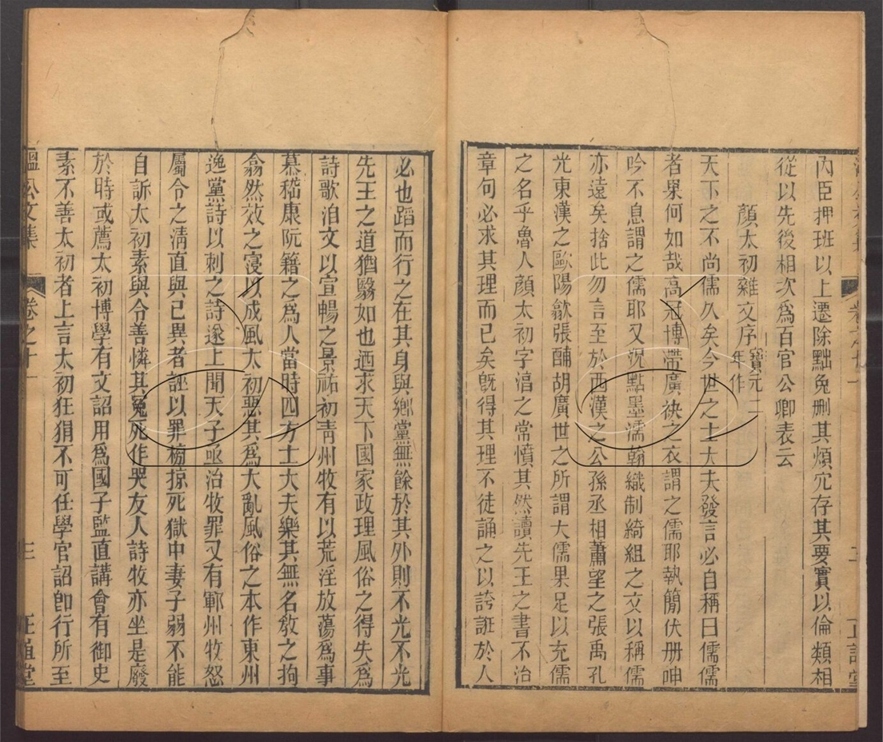 內臣押班以上遷除黜免刪其煩宂存其要實以倫類相
從以先後相次爲百官公卿表云
顏太初雜文序寶元二年作
天下之不尚儒久矣今世之士大夫發言必自稱曰儒儒
者果何如哉高冠博帶廣袂之衣謂之儒耶執簡伏册呻
吟不息謂之儒耶又況點墨濡翰織制綺組之文以稱儒
亦遠矣捨此勿言至於西漢之公孫丞相蕭望之張禹孔
光東漢之歐陽歙張酺胡廣世之所謂大儒果足以充儒
之名乎魯人顏太初字淳之常憤其然讀先王之書不治
章句必求其理而已矣旣得其理不徒誦之以誇誑於人
必也蹈而行之在其身與鄉黨無餘於其外則不光不光
先王之道猶翳如也迺求天下國家政理風俗之得失爲
詩歌洎文以宣暢之景祐初青州牧有以荒淫放蕩爲事
慕嵇康阮籍之爲人當時四方士大夫樂其無名敎之拘
翕然效之寖以成風太初惡其爲大亂風俗之本作東州
逸黨詩以刺之詩遂上聞天子亟治牧罪又有鄆州牧怒
屬令之清直與己異者誣以罪榜掠死獄中妻子弱不能
自訴太初素與令善憐其冤死作哭友人詩牧亦坐是廢
於時或薦太初博學有文詔用爲國子監直講會有御史
素不善太初者上言太初狂狷不可任學官詔卽行所至
溫公文集
卷之十一
三
正誼堂